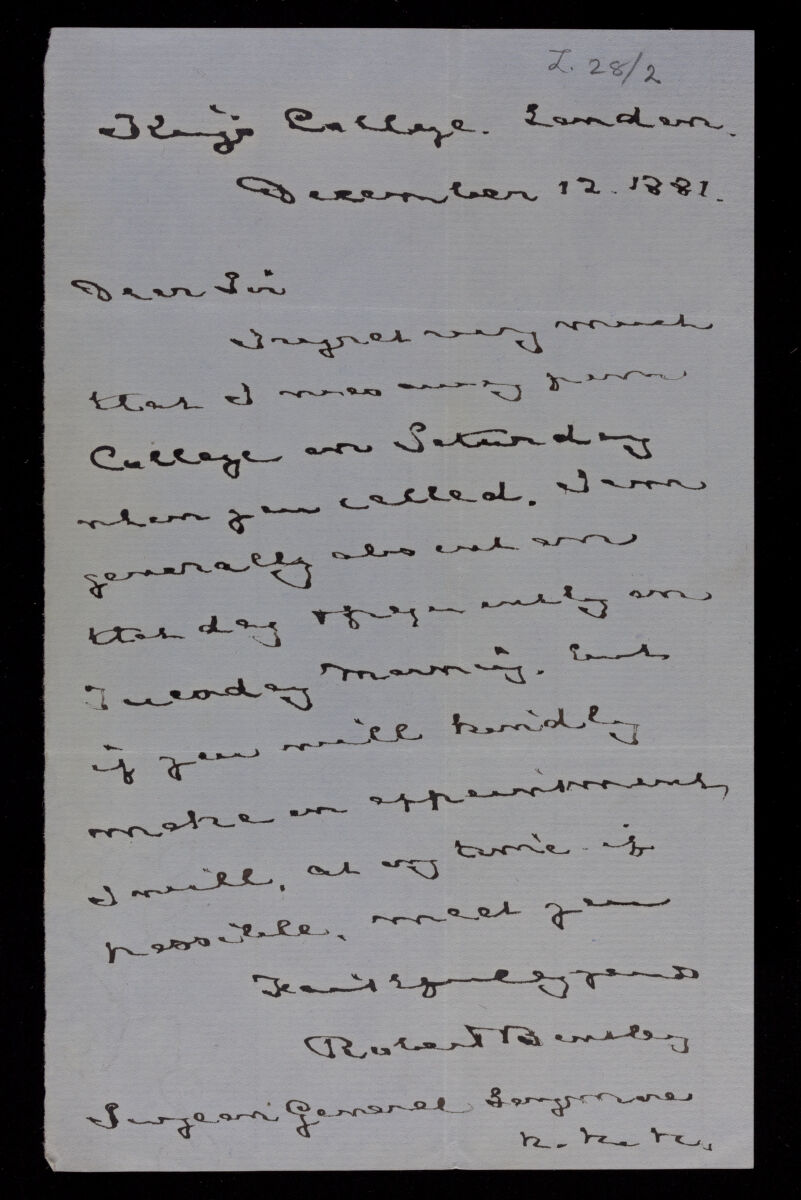 L. 28/2
King's College. London.
December 12. 1881.
Dear Sir
I regret very much
that I was away from
College on Saturday
when you called. I am
generally absent on
that day & frequently on
Tuesday morning. But
if you will kindly
make an appointment,
I will, at any time if
possible, meet you
Faithfully yours
Robert Bentley
Surgeon General Longmore